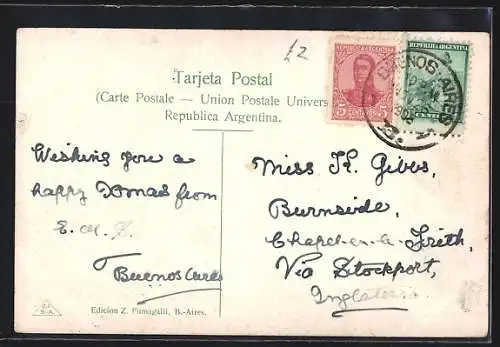 £2
Tarjeta Postal
(Carte Postale — Union Postale Univers
Republica Argentina.
REPUBLICA ARGENTINA
5 CENTAVOS 5
REPUBLICA ARGENTINA
BUENOS AIRES
Wishing you a
happy Xmas from
E.
Buenos Aires
Miss K. Gibbs,
Burnside,
Chapel-en-le-Frith,
Via Stockport,
Inglaterra
Edicion Z. Fumagalli, B.-Aires.